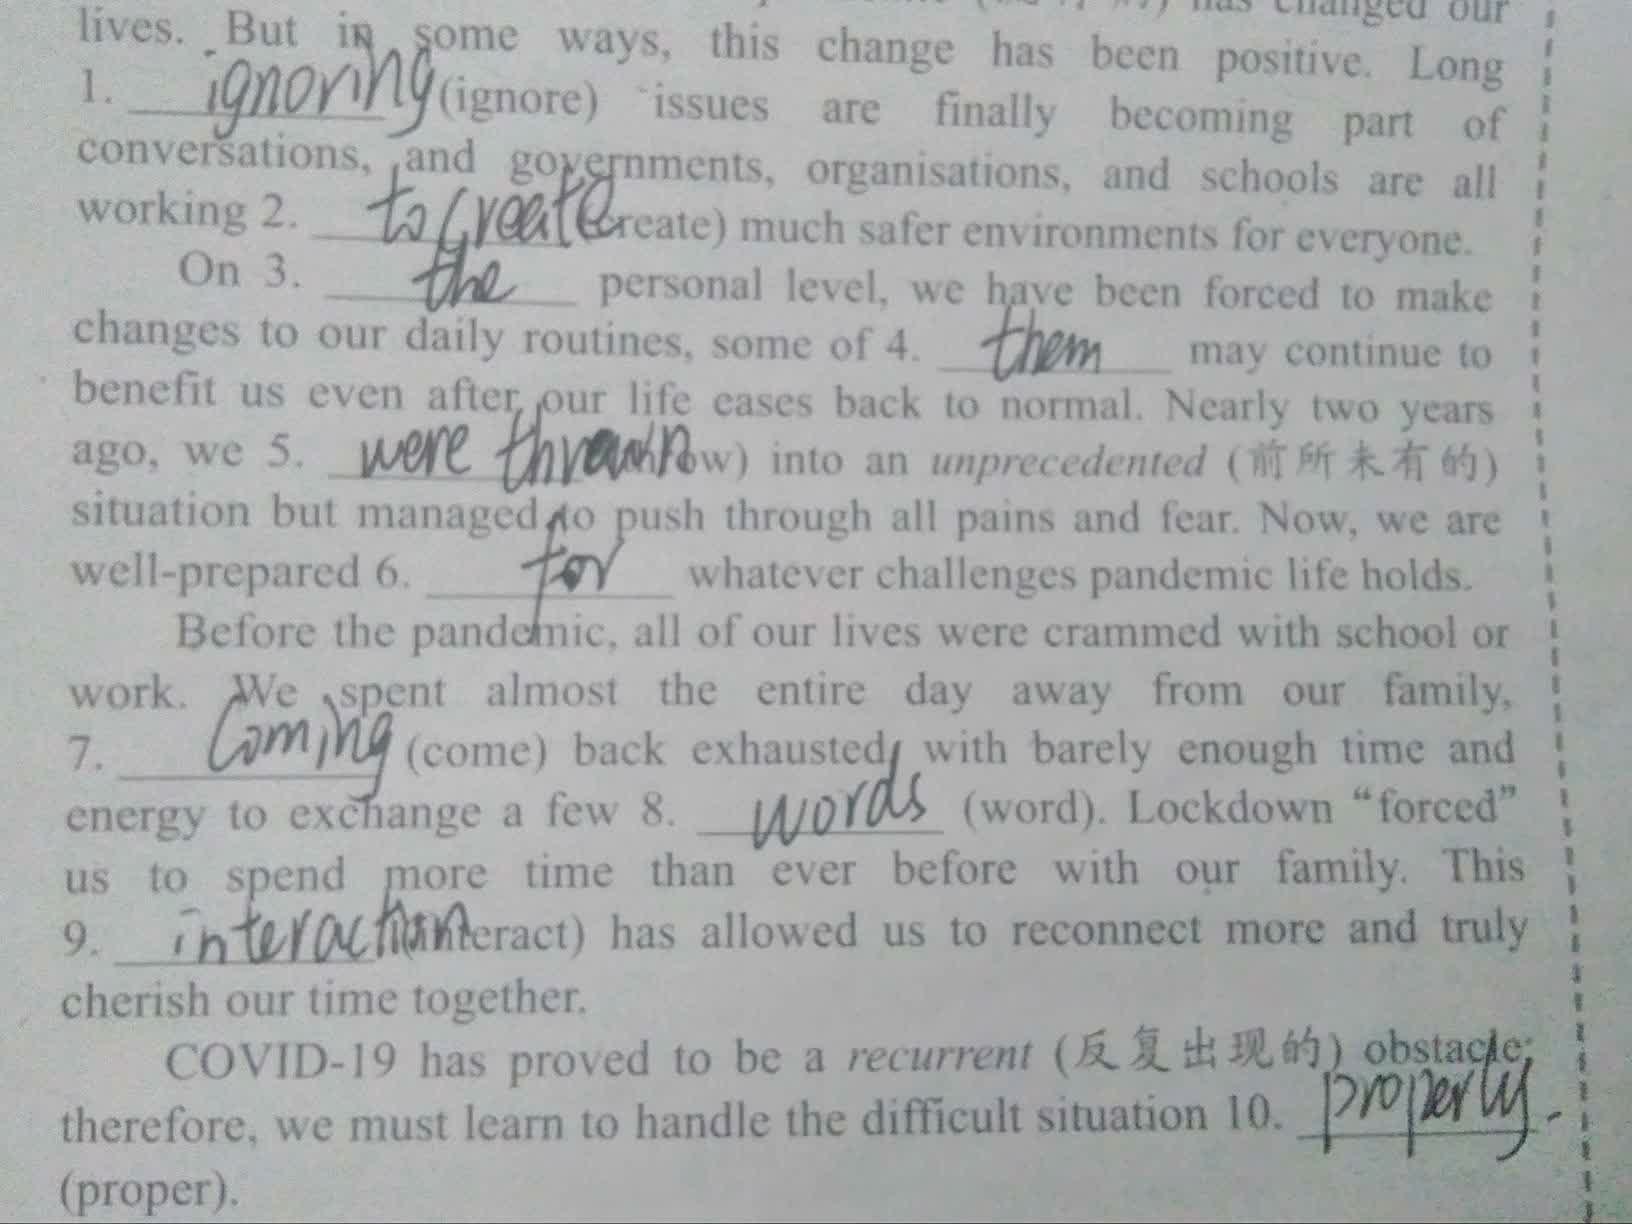 has changed our
lives. But in some ways, this change has been positive. Long
1. ignoring (ignore) issues are finally becoming part of
conversations, and governments, organisations, and schools are all
working 2. to create (create) much safer environments for everyone.
On 3. the personal level, we have been forced to make
changes to our daily routines, some of 4. them may continue to
benefit us even after our life eases back to normal. Nearly two years
ago, we 5. were thrown ow) into an unprecedented (前所未有的)
situation but managed to push through all pains and fear. Now, we are
well-prepared 6. for whatever challenges pandemic life holds.
Before the pandemic, all of our lives were crammed with school or
work. We spent almost the entire day away from our family,
7. Coming (come) back exhausted, with barely enough time and
energy to exchange a few 8. words (word). Lockdown “forced”
us to spend more time than ever before with our family. This
9. interaction (interact) has allowed us to reconnect more and truly
cherish our time together.
COVID-19 has proved to be a recurrent (反复出现的) obstacle;
therefore, we must learn to handle the difficult situation 10. properly.
(proper).